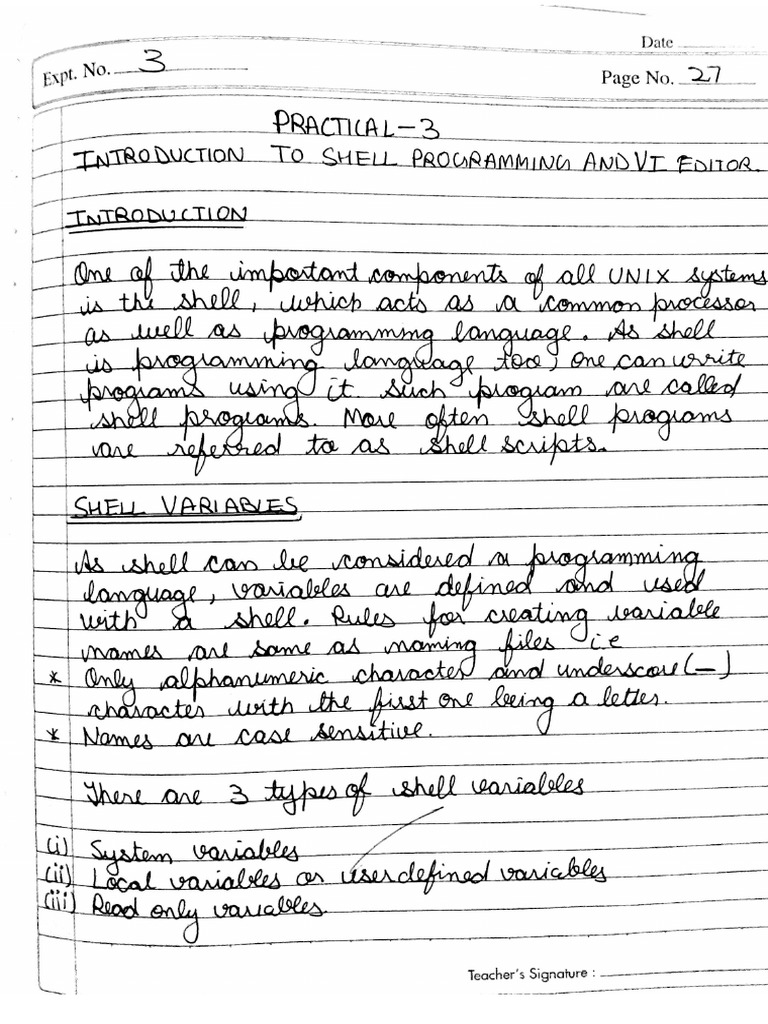 Date
Expt. No. 3
Page No. 27
PRACTICAL-3
INTRODUCTION TO SHELL PROGRAMMING AND VI EDITOR.
INTRODUCTION
One of the important components of all UNIX systems
is the shell, which acts as a common processor
as well as programming language. As shell
is programming language too, one can write
programs using it. Such program are called
shell programs. More often shell programs
are referred to as shell scripts.
SHELL VARIABLES
As shell can be considered a programming
language, variables are defined and used
with a shell. Rules for creating variable
names are same as naming files i.e
* Only alphanumeric character and underscore(_)
character with the first one being a letter.
* Names are case sensitive.
There are 3 types of shell variables
(i) System variables
(ii) Local variables or user defined variables
(iii) Read only variables.
Teacher's Signature :